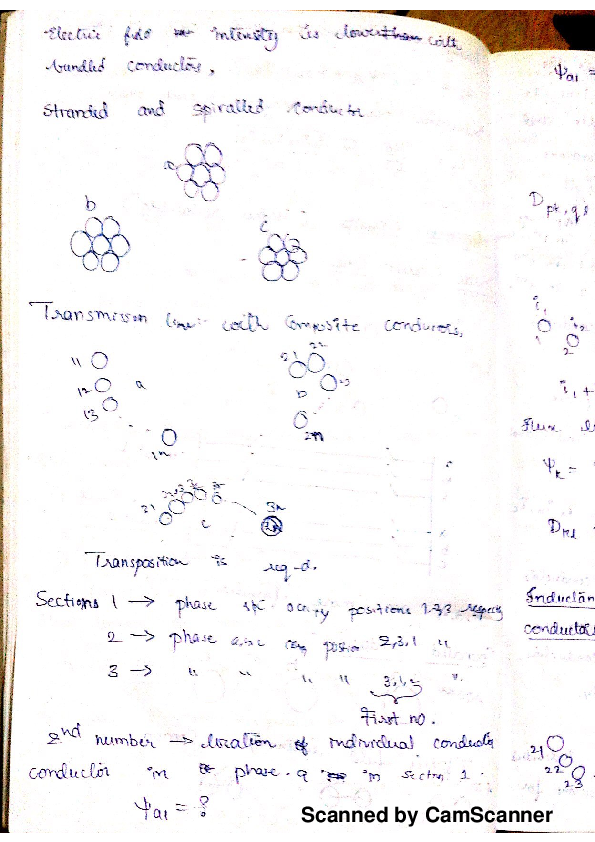 Electric intensity is lower with
bundled conductors,
Stranded and spiralled conductor
a
b
c
Transmission line with Composite conductors,
11
12
a
13
1n
21
22
23
b
2n
21
c
3n
Transposition is req-d.
Sections 1 → phase occupy positions 1,2,3 respey
2 → phase a,b,c position 2,3,1 "
3 → " " " " 3,1,2 "
First no.
2nd number → location of individual conductor
conductor in phase a in section 1.
Ψa1 = ?
Ψa1 =
Dpk,qs
i1
i2
1
2
i1 +
Flux
Ψk =
Inductan
conductors
21
22
23
Scanned by CamScanner